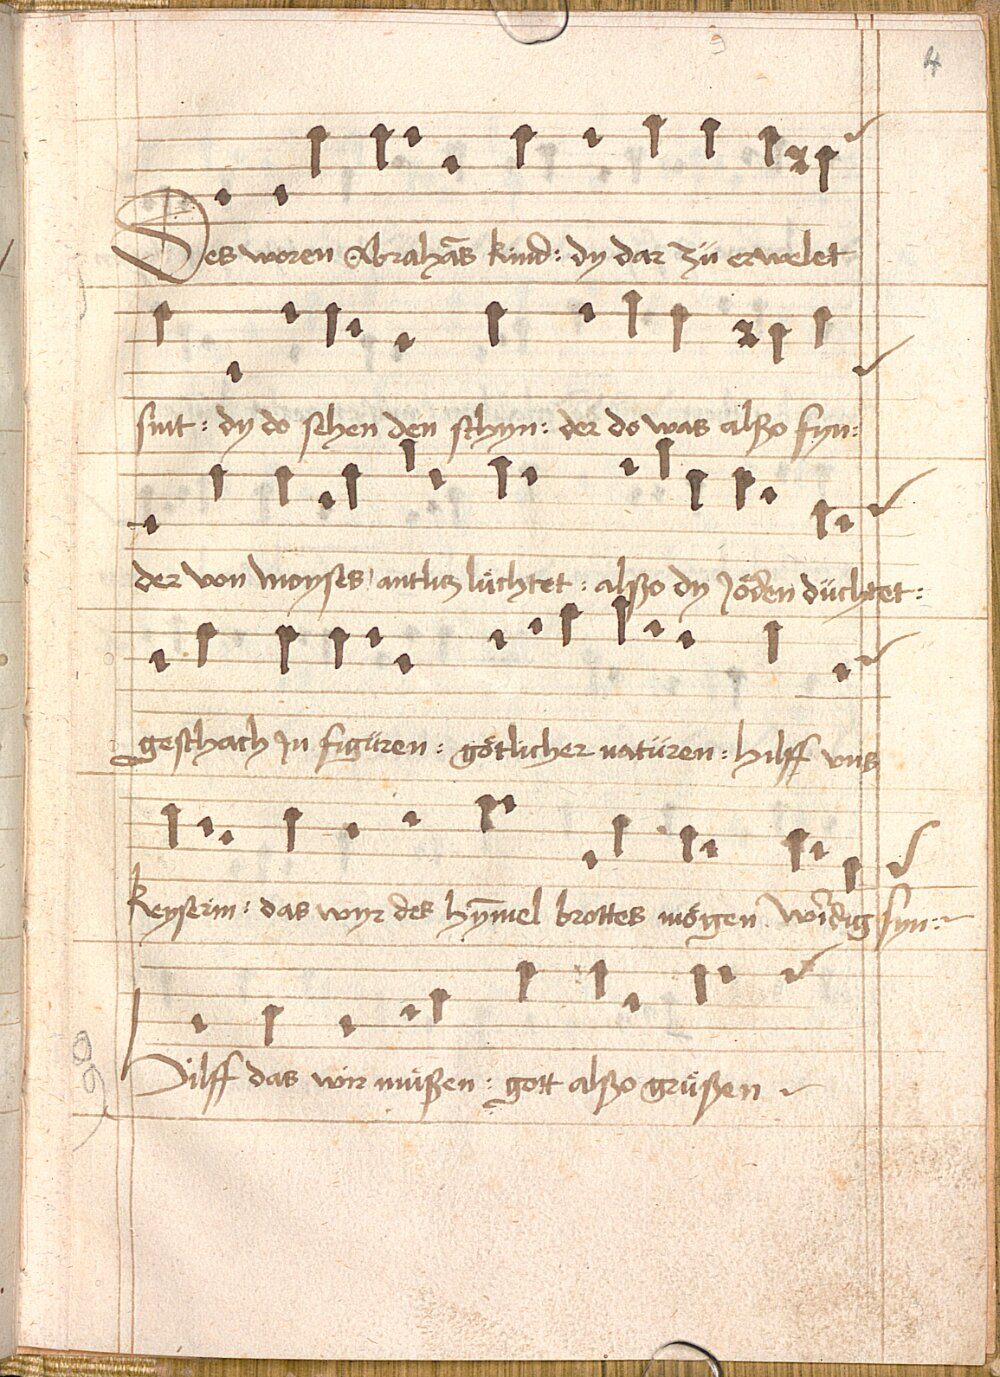 4
Des woren Abrahās kind: dy dar zü erwelet
sint: dy do sehen den schyn: der do was alßo fyn:
der von Moyses antlitz lüchtet: alßo dy Jöden düchtet:
geschach Jn figüren: götlicher natüren: hilff vns
keyserin: das wyr des hȳmel brottes mögen wirdig syn:
Hilff das wir müßen: gott alßo grüßen